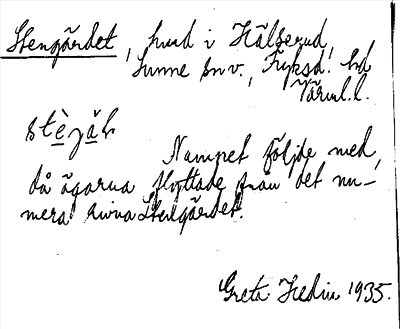 Stengärdet, hmd i Hälserud,
Sunne snv., Fryksd. hd
Värml. l.
stègäḷ
Namnet följde med,
då ägarna flyttade från det nu-
mera Stengärdet.
Greta Hedin 1935.